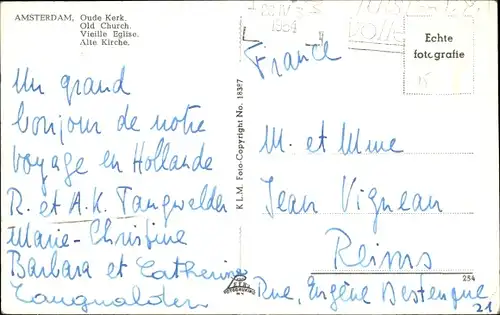 AMSTERDAM, Oude Kerk.
Old Church.
Vieille Eglise.
Alte Kirche.
1954
Echte
fotografie
France
Un grand
bonjour de notre
voyage en Hollande
R. et A.K. Tangwelder
Marie-Christine
Barbara et Catherine
M. et Mme
Jean Vigneau
Reims
Rue, Eugène Destenque
21
254
K.L.M. Foto-Copyright No. 18387